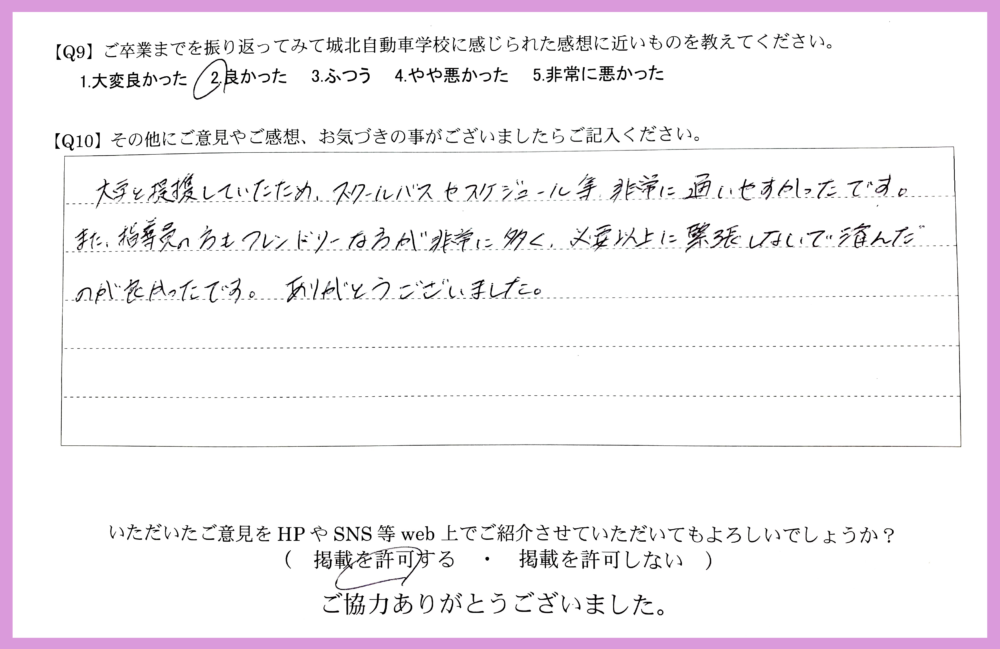 【Q9】ご卒業までを振り返ってみて城北自動車学校に感じられた感想に近いものを教えてください。
1.大変良かった 2.良かった 3.ふつう 4.やや悪かった 5.非常に悪かった
【Q10】その他にご意見やご感想、お気づきの事がございましたらご記入ください。
大学と提携していたため、スクールバスやスケジュール等、非常に通いやすかったです。
また、指導員の方もフレンドリーな方が非常に多く、必要以上に緊張しないで済んだ
のが良かったです。 ありがとうございました。
いただいたご意見をHPやSNS等web上でご紹介させていただいてもよろしいでしょうか？
( 掲載を許可する ・ 掲載を許可しない )
ご協力ありがとうございました。